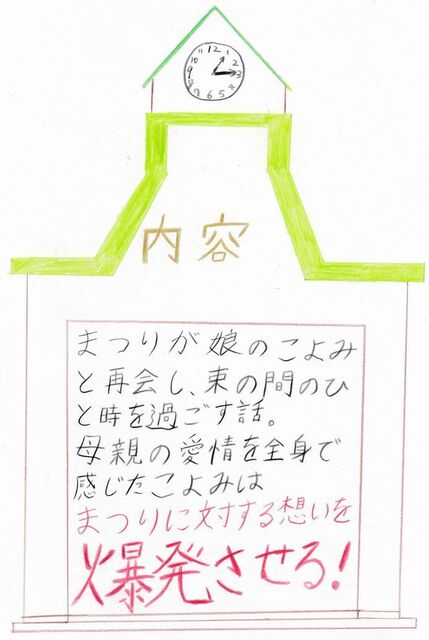 12
1
2
3
4
5
6
7
8
9
10
11
内容
まつりが娘のこよみ
と再会し、束の間のひ
と時を過ごす話。
母親の愛情を全身で
感じたこよみは
まつりに対する想いを
爆発させる!